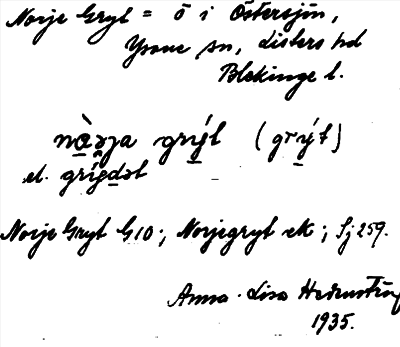 Norje Gryt = ö i Östersjön,
Ysane sn, Listers hd
Blekinge l.
nὰrja grýt (grýt)
el.
Norje Gryt G10; Norjegryt ek; Sj 259.
Anna-Lisa Hedenström
1935.